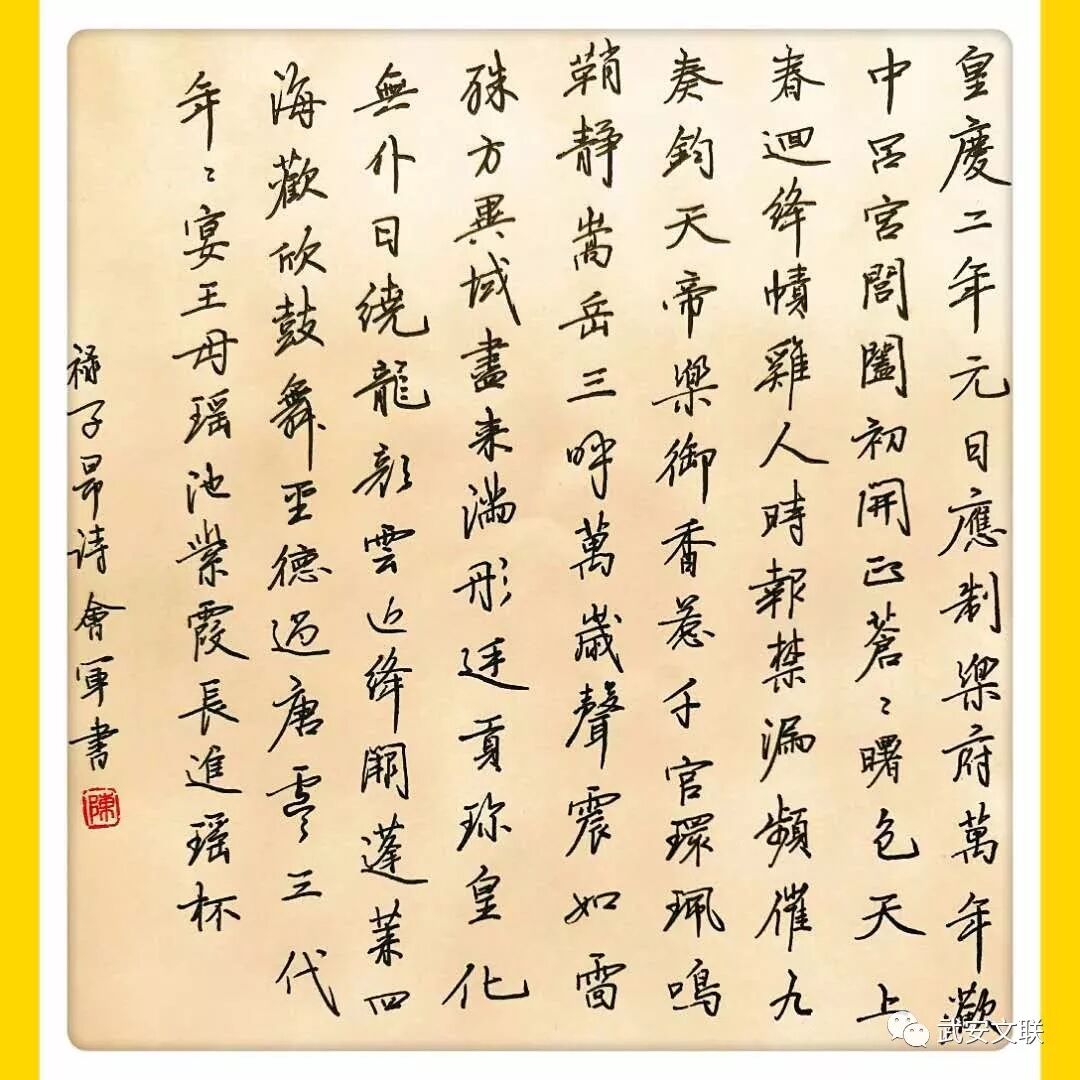 皇慶二年元日應制樂府萬年歡
中呂宮閶闔初開正蒼〻曙色天上
春迴絳幘雞人時報禁漏頻催九
奏鈞天帝樂御香惹千官環珮鳴
鞘静嵩岳三呼萬歲聲震如雷
殊方異域盡来滿彤廷貢珎皇化
無外日繞龍顔雲近絳闕蓬莱四
海歡欣鼓舞聖德過唐虞三代
年〻宴王母瑶池紫霞長進瑶杯
禄子昻詩會軍書
陳
武安文联